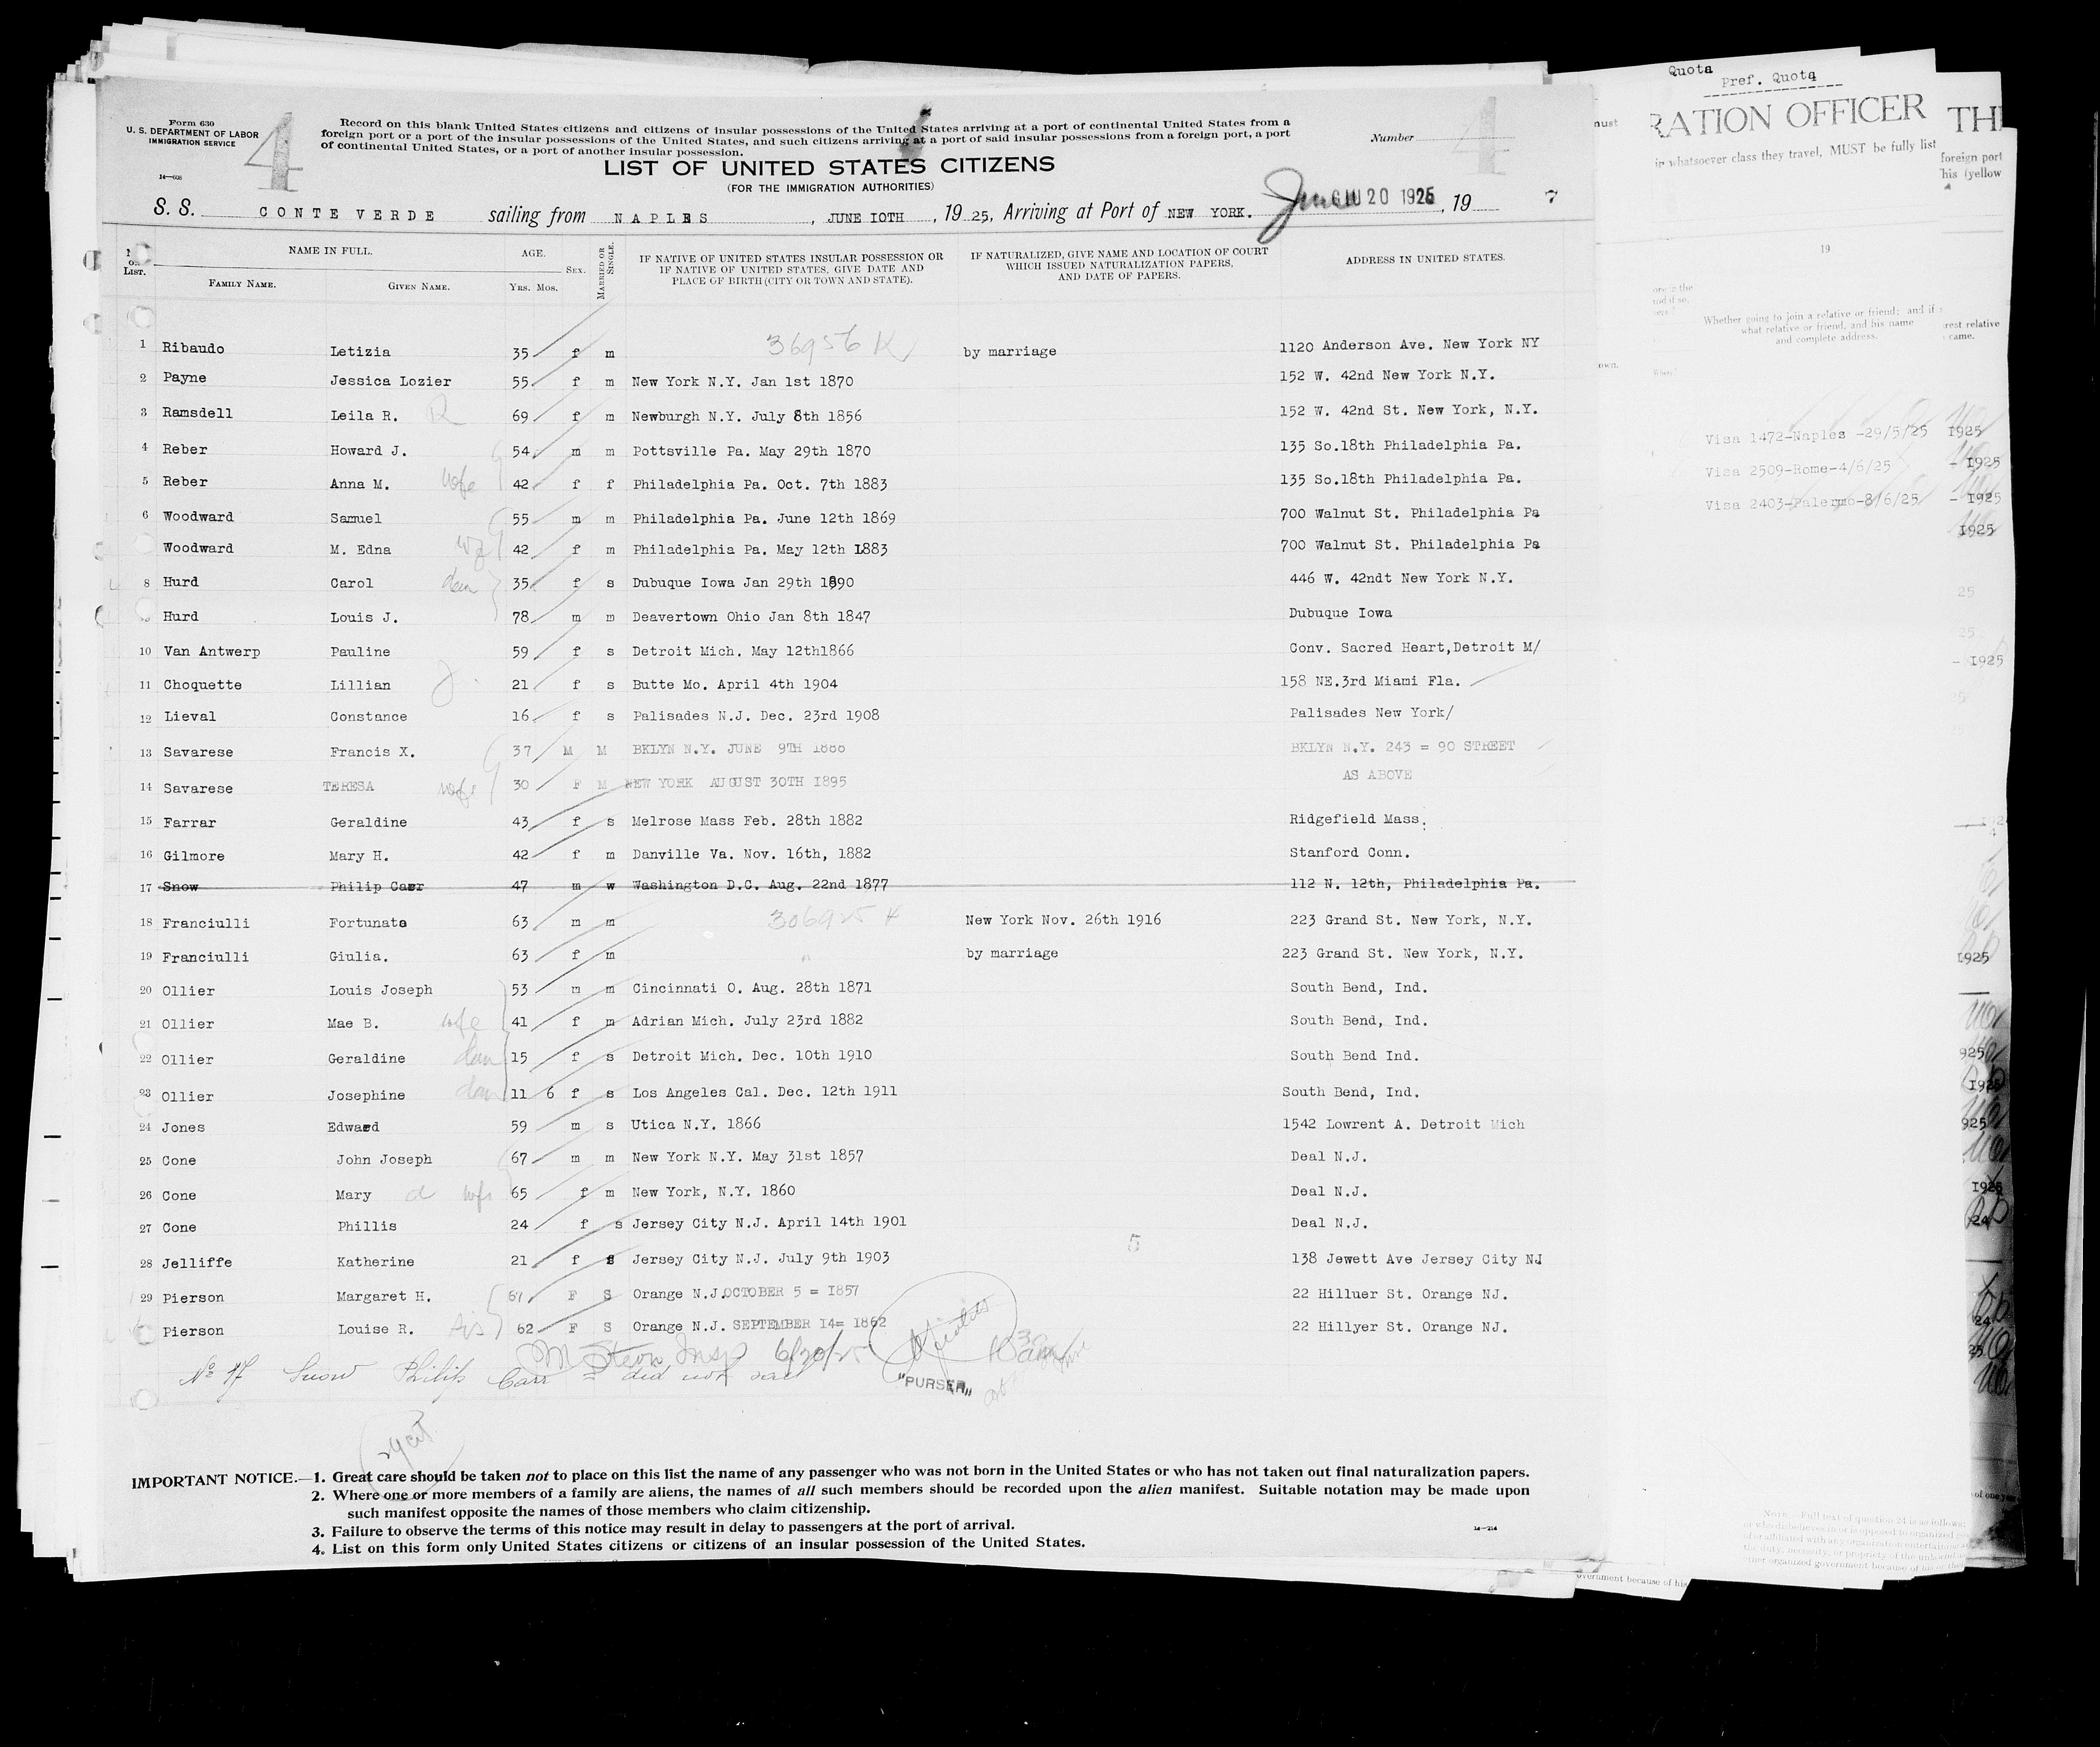 Quota
Pref. Quota
RATION OFFICER
THE
in whatsoever class they travel, MUST be fully list
foreign port
his (yellow
Form 630
U. S. DEPARTMENT OF LABOR
IMMIGRATION SERVICE
14—608
4
Record on this blank United States citizens and citizens of insular possessions of the United States arriving at a port of continental United States from a
foreign port or a port of the insular possessions of the United States, and such citizens arriving at a port of said insular possessions from a foreign port, a port
of continental United States, or a port of another insular possession.
Number
4
LIST OF UNITED STATES CITIZENS
(FOR THE IMMIGRATION AUTHORITIES)
S. S. CONTE VERDE sailing from NAPLES, JUNE IOTH, 19 25, Arriving at Port of NEW YORK. June 20 1925, 19
7
LIST.
NAME IN FULL.
FAMILY NAME.
GIVEN NAME.
AGE.
YRS. MOS.
SEX.
MARRIED OR SINGLE.
IF NATIVE OF UNITED STATES INSULAR POSSESSION OR
IF NATIVE OF UNITED STATES, GIVE DATE AND
PLACE OF BIRTH (CITY OR TOWN AND STATE).
IF NATURALIZED, GIVE NAME AND LOCATION OF COURT
WHICH ISSUED NATURALIZATION PAPERS,
AND DATE OF PAPERS.
ADDRESS IN UNITED STATES.
1 Ribaudo Letizia 35 f m 36956 K by marriage 1120 Anderson Ave. New York NY
2 Payne Jessica Lozier 55 f m New York N.Y. Jan 1st 1870 152 W. 42nd New York N.Y.
3 Ramsdell Leila R. 69 f m Newburgh N.Y. July 8th 1856 152 W. 42nd St. New York, N.Y.
4 Reber Howard J. 54 m m Pottsville Pa. May 29th 1870 135 So.18th Philadelphia Pa.
5 Reber Anna M. wife 42 f f Philadelphia Pa. Oct. 7th 1883 135 So.18th Philadelphia Pa.
6 Woodward Samuel 55 m m Philadelphia Pa. June 12th 1869 700 Walnut St. Philadelphia Pa
Woodward M. Edna wf 42 f m Philadelphia Pa. May 12th 1883 700 Walnut St. Philadelphia Pa
8 Hurd Carol dau 35 f s Dubuque Iowa Jan 29th 1890 446 W. 42ndt New York N.Y.
Hurd Louis J. 78 m m Deavertown Ohio Jan 8th 1847 Dubuque Iowa
10 Van Antwerp Pauline 59 f s Detroit Mich. May 12th1866 Conv. Sacred Heart,Detroit M/
11 Choquette Lillian 21 f s Butte Mo. April 4th 1904 158 NE.3rd Miami Fla.
12 Lieval Constance 16 f s Palisades N.J. Dec. 23rd 1908 Palisades New York/
13 Savarese Francis X. 37 M M BKLYN N.Y. JUNE 9TH 1888 BKLYN N.Y. 243 = 90 STREET
14 Savarese TERESA wife 30 F M NEW YORK AUGUST 30TH I895 AS ABOVE
15 Farrar Geraldine 43 f s Melrose Mass Feb. 28th 1882 Ridgefield Mass.
16 Gilmore Mary H. 42 f m Danville Va. Nov. 16th, 1882 Stanford Conn.
17 Snow Philip Carr 47 m w Washington D.C. Aug. 22nd 1877 112 N. 12th, Philadelphia Pa.
18 Franciulli Fortunata 63 m m New York Nov. 26th 1916 223 Grand St. New York, N.Y.
19 Franciulli Giulia. 63 f m by marriage 223 Grand St. New York, N.Y.
20 Ollier Louis Joseph 53 m m Cincinnati O. Aug. 28th 1871 South Bend, Ind.
21 Ollier Mae B. wife 41 f m Adrian Mich. July 23rd 1882 South Bend, Ind.
22 Ollier Geraldine dau 15 f s Detroit Mich. Dec. 10th 1910 South Bend Ind.
23 Ollier Josephine dau 11 6 f s Los Angeles Cal. Dec. 12th 1911 South Bend, Ind.
24 Jones Edward 59 m s Utica N.Y. 1866 1542 Lowrent A. Detroit Mich
25 Cone John Joseph 67 m m New York N.Y. May 31st 1857 Deal N.J.
26 Cone Mary 65 f m New York, N.Y. 1860 Deal N.J.
27 Cone Phillis 24 f s Jersey City N.J. April 14th 1901 Deal N.J.
28 Jelliffe Katherine 21 f s Jersey City N.J. July 9th 1903 138 Jewett Ave Jersey City NJ
5
29 Pierson Margaret H. 67 F S Orange N.J.OCTOBER 5 = I857 22 Hilluer St. Orange NJ.
Pierson Louise R. sis 62 F S Orange N.J. SEPTEMBER I4= I862 22 Hillyer St. Orange NJ.
6/20/25
No 17 Snow Philip Carr = did not sail
"PURSER"
IMPORTANT NOTICE.—1. Great care should be taken not to place on this list the name of any passenger who was not born in the United States or who has not taken out final naturalization papers.
2. Where one or more members of a family are aliens, the names of all such members should be recorded upon the alien manifest. Suitable notation may be made upon
such manifest opposite the names of those members who claim citizenship.
3. Failure to observe the terms of this notice may result in delay to passengers at the port of arrival.
4. List on this form only United States citizens or citizens of an insular possession of the United States.
14—214
19
Whether going to join a relative or friend; and if
what relative or friend, and his name
and complete address.
Visa 1472-Naples -29/5/25
Visa 2509-Rome-4/6/25
Visa 2403-Palermo-8/6/25
I925
- I925
- I925
I925